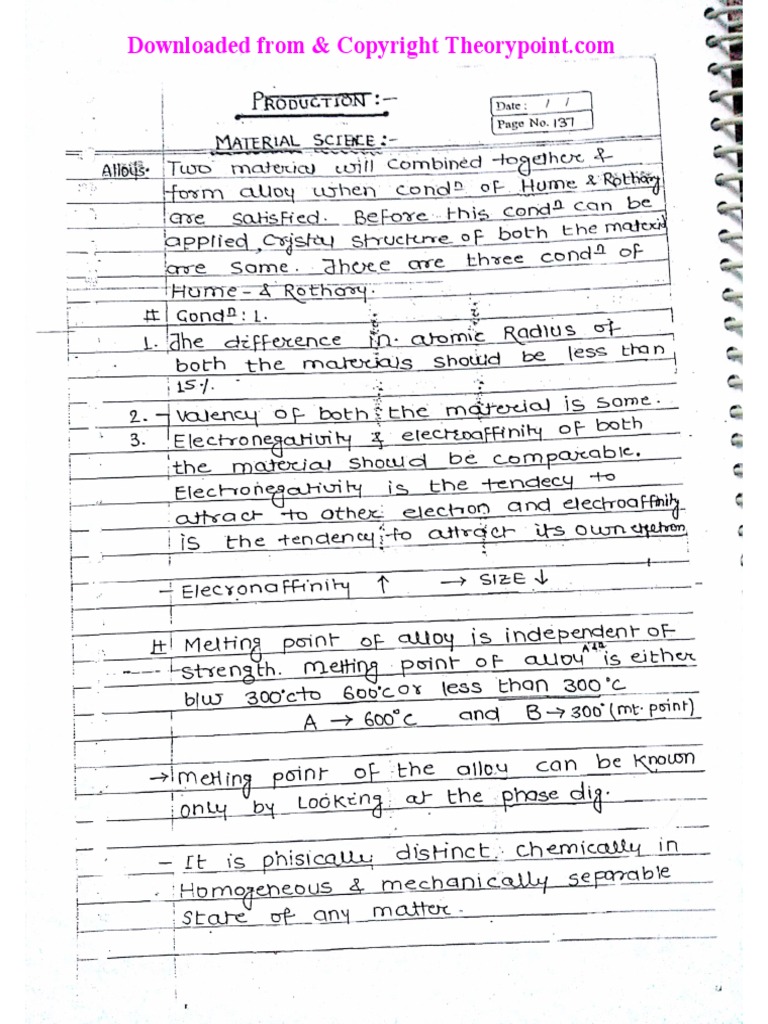 Downloaded from & Copyright Theorypoint.com
PRODUCTION:-
Date: / /
Page No. 137
MATERIAL SCIENCE:-
Alloys. Two material will combined together &
form alloy when condⁿ of Hume & Rothary
are satisfied. Before this condⁿ can be
applied, crystal structure of both the material
are same. There are three condⁿ of
Hume - & Rothory.
# Condⁿ: 1.
1. The difference in atomic Radius of
both the materials should be less than
15%.
2. - Valency of both the material is same.
3. Electronegativity & electroaffinity of both
the material should be comparable.
Electronegativity is the tendecy to
attract to other electron and electroaffinity
is the tendency to attract its own electron
- Elecronaffinity ↑ → SIZE ↓
# Melting point of alloy is independent of
strength. Melting point of alloy is either
b/w 300°c to 600°c or less than 300°c
A → 600°c and B → 300° (mt. point)
→ Melting point of the alloy can be known
only by Looking at the phase dig.
- It is phisically distinct, chemically in
Homogeneous & mechanically separable
state of any matter.